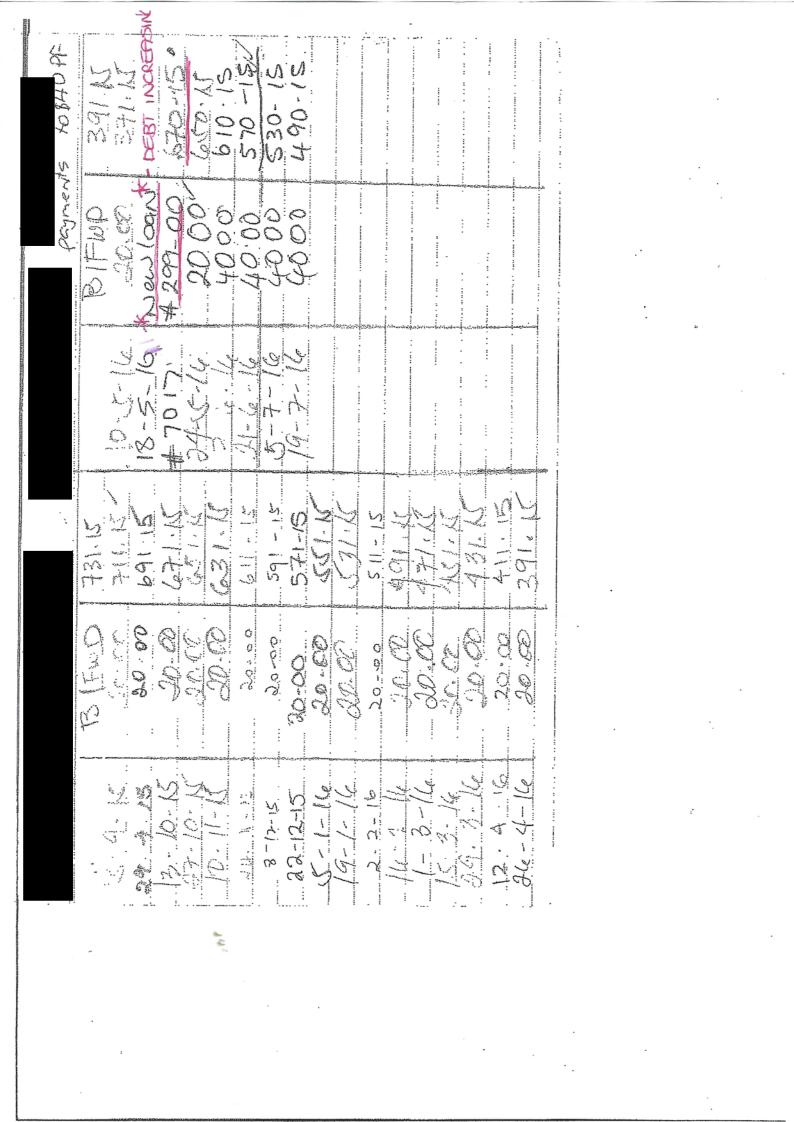 payments to $40 PF
B/FWD 731.15 B/FWD 391.15
20.00 711.15 10-5-16 20.00 371.15
29.9.15 20.00 691.15 18-5-16 * New loan * - DEBT INCREASIN
13.10.15 20.00 671.15 # 7017. # 299-00 670-15
27.10.15 20.00 651.15 24-5-16 20.00 650.15
10.11.15 20.00 631.15 40.00 610.15
20.00 611-15 21-6-16 40.00 570-15
8-12-15 20-00 591-15 5-7-16 40.00 530-15
22-12-15 20.00 571-15 19-7-16 40.00 490-15
5-1-16 20.00 551.15
19-1-16 20.00 531.15
2-2-16 20-00 511-15
16-2-16 20.00 491.15
1-3-16 20.00 471.15
15.3.16 20.00 451.15
29.3.16 20.00 431.15
12.4.16 20.00 411.15
26-4-16 20.00 391.15